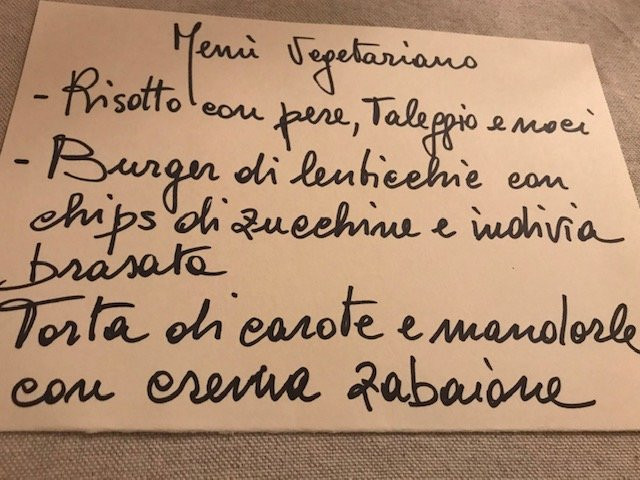 Menù Vegetariano
- Risotto con pere, Taleggio e noci
- Burger di lenticchie con
chips di zucchine e indivia
brasata
Torta di carote e mandorle
con crema zabaione